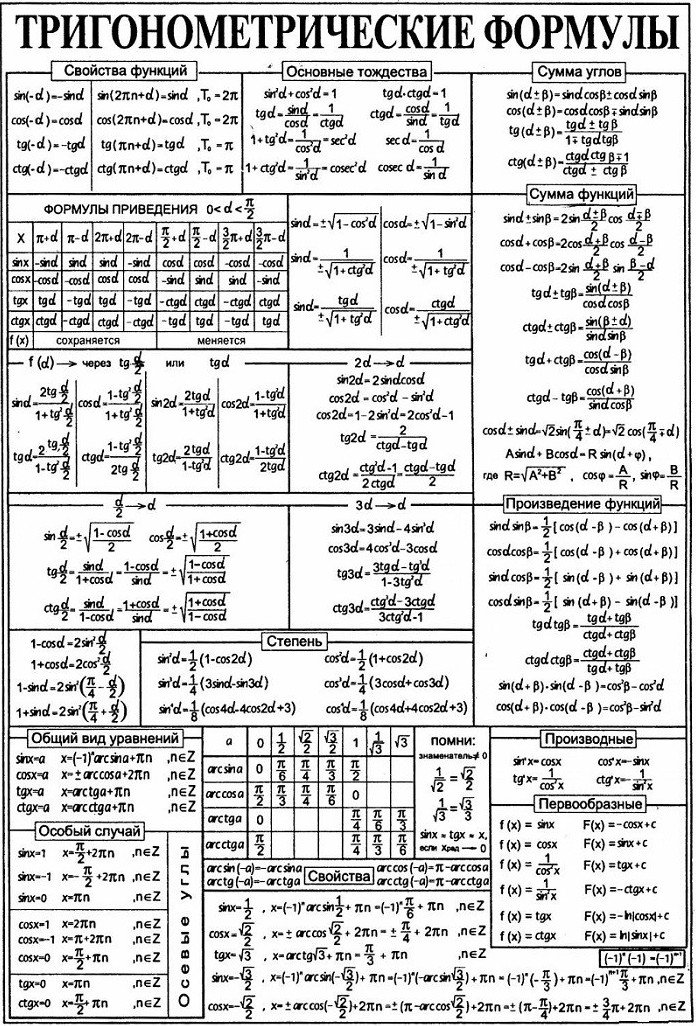 ТРИГОНОМЕТРИЧЕСКИЕ ФОРМУЛЫ
Свойства функций
sin(-α)=-sinα sin(2πn+α)=sinα ,T₀ = 2π
cos(-α)=cosα cos(2πn+α)=cosα ,T₀ = 2π
tg(-α)=-tgα tg(πn+α)=tgα ,T₀ = π
ctg(-α)=-ctgα ctg(πn+α)=ctgα ,T₀ = π
Основные тождества
sin²α+cos²α=1 tgα·ctgα=1
tgα=sinα/cosα=1/ctgα ctgα=cosα/sinα=1/tgα
1+tg²α=1/cos²α=sec²α secα=1/cosα
1+ctg²α=1/sin²α=cosec²α cosecα=1/sinα
Сумма углов
sin(α±β)=sinαcosβ±cosαsinβ
cos(α±β)=cosαcosβ∓sinαsinβ
tg(α±β)=(tgα±tgβ)/(1∓tgαtgβ)
ctg(α±β)=(ctgαctgβ∓1)/(ctgα±ctgβ)
ФОРМУЛЫ ПРИВЕДЕНИЯ 0<α<π/2
X π+α π-α 2π+α 2π-α π/2+α π/2-α 3/2π+α 3/2π-α
sinx -sinα sinα sinα -sinα cosα cosα -cosα -cosα
cosx -cosα -cosα cosα cosα -sinα sinα sinα -sinα
tgx tgα -tgα tgα -tgα -ctgα ctgα -ctgα ctgα
ctgx ctgα -ctgα ctgα -ctgα -tgα tgα -tgα tgα
f(x) сохраняется меняется
sinα=±√(1-cos²α) cosα=±√(1-sin²α)
sinα=1/±√(1+ctg²α) cosα=1/±√(1+tg²α)
sinα=tgα/±√(1+tg²α) cosα=ctgα/±√(1+ctg²α)
Сумма функций
sinα±sinβ=2sin(α±β)/2 cos(α∓β)/2
cosα+cosβ=2cos(α+β)/2 cos(α-β)/2
cosα-cosβ=2sin(α+β)/2 sin(β-α)/2
tgα±tgβ=sin(α±β)/cosαcosβ
ctgα±ctgβ=sin(β±α)/sinαsinβ
tgα+ctgβ=cos(α-β)/cosαsinβ
ctgα-tgβ=cos(α+β)/sinαcosβ
cosα±sinα=√2sin(π/4±α)=√2cos(π/4∓α)
Asinα+Bcosα=R sin(α+φ),
где R=√(A²+B²) , cosφ=A/R, sinφ=B/R
f(α)→через tgα/2 или tgα
sinα=2tgα/2/(1+tg²α/2) cosα=(1-tg²α/2)/(1+tg²α/2) sin2α=2tgα/(1+tg²α) cos2α=(1-tg²α)/(1+tg²α)
tgα=2tgα/2/(1-tg²α/2) ctgα=(1-tg²α/2)/2tgα/2 tg2α=2tgα/(1-tg²α) ctg2α=(1-tg²α)/2tgα
2α→α
sin2α=2sinαcosα
cos2α=cos²α-sin²α
cos2α=1-2sin²α=2cos²α-1
tg2α=2/(ctgα-tgα)
ctg2α=(ctg²α-1)/2ctgα=(ctgα-tgα)/2
α/2→α
sinα/2=±√((1-cosα)/2) cosα/2=±√((1+cosα)/2)
tgα/2=sinα/(1+cosα)=(1-cosα)/sinα=±√((1-cosα)/(1+cosα))
ctgα/2=sinα/(1-cosα)=(1+cosα)/sinα=±√((1+cosα)/(1-cosα))
3α→α
sin3α=3sinα-4sin³α
cos3α=4cos³α-3cosα
tg3α=(3tgα-tg³α)/(1-3tg²α)
ctg3α=(ctg³α-3ctgα)/(3ctg²α-1)
Произведение функций
sinαsinβ=1/2[cos(α-β)-cos(α+β)]
cosαcosβ=1/2[cos(α-β)+cos(α+β)]
sinαcosβ=1/2[sin(α-β)+sin(α+β)]
cosαsinβ=1/2[sin(α+β)-sin(α-β)]
tgαtgβ=(tgα+tgβ)/(ctgα+ctgβ)
ctgαctgβ=(ctgα+ctgβ)/(tgα+tgβ)
sin(α+β)·sin(α-β)=cos²β-cos²α
cos(α+β)·cos(α-β)=cos²β-sin²α
1-cosα=2sin²α/2
1+cosα=2cos²α/2
1-sinα=2sin²(π/4-α/2)
1+sinα=2sin²(π/4+α/2)
Степень
sin²α=1/2(1-cos2α) cos²α=1/2(1+cos2α)
sin³α=1/4(3sinα-sin3α) cos³α=1/4(3cosα+cos3α)
sin⁴α=1/8(cos4α-4cos2α+3) cos⁴α=1/8(cos4α+4cos2α+3)
Общий вид уравнений
sinx=a x=(-1)ⁿarcsina+πn ,n∈Z
cosx=a x=±arccosa+2πn ,n∈Z
tgx=a x=arctga+πn ,n∈Z
ctgx=a x=arcctga+πn ,n∈Z
Особый случай
sinx=1 x=π/2+2πn ,n∈Z
sinx=-1 x=-π/2+2πn ,n∈Z
sinx=0 x=πn ,n∈Z
cosx=1 x=2πn ,n∈Z
cosx=-1 x=π+2πn ,n∈Z
cosx=0 x=π/2+πn ,n∈Z
tgx=0 x=πn ,n∈Z
ctgx=0 x=π/2+πn ,n∈Z
Осевые углы
a 0 1/2 √2/2 √3/2 1 1/√3 √3
arcsina 0 π/6 π/4 π/3 π/2
arccosa π/2 π/3 π/4 π/6 0
arctga 0 π/4 π/6 π/3
arcctga π/2 π/4 π/3 π/6
ПОМНИ:
знаменатель≠0
1/√2=√2/2
1/√3=√3/3
sinx≈tgx≈x,
если Xрад→0
arcsin(-a)=-arcsina arccos(-a)=π-arccosa
arctg(-a)=-arctga arcctg(-a)=π-arcctga
Свойства
sinx=1/2 , x=(-1)ⁿarcsin1/2+πn=(-1)ⁿπ/6+πn ,n∈Z
cosx=√2/2 , x=±arccos√2/2+2πn=±π/4+2πn ,n∈Z
tgx=√3 , x=arctg√3+πn=π/3+πn ,n∈Z
sinx=-√3/2 , x=(-1)ⁿarcsin(-√3/2)+πn=(-1)ⁿ(-arcsin√3/2)+πn=(-1)ⁿ(-π/3)+πn=(-1)ⁿ⁺¹π/3+πn ,n∈Z
cosx=-√2/2 , x=±arccos(-√2/2)+2πn=±(π-arccos√2/2)+2πn=±(π-π/4)+2πn=±3/4π+2πn ,n∈Z
Производные
sin'x=cosx cos'x=-sinx
tg'x=1/cos²x ctg'x=-1/sin²x
Первообразные
f(x)=sinx F(x)=-cosx+c
f(x)=cosx F(x)=sinx+c
f(x)=1/cos²x F(x)=tgx+c
f(x)=1/sin²x F(x)=-ctgx+c
f(x)=tgx F(x)=-ln|cosx|+c
f(x)=ctgx F(x)=ln|sinx|+c
(-1)ⁿ(-1)=(-1)ⁿ⁺¹